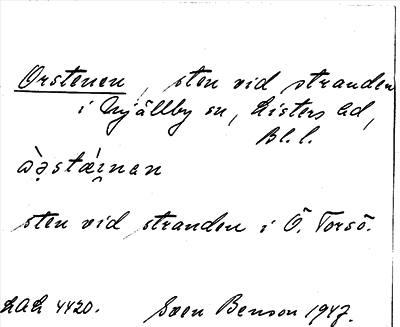 Orstenen, sten vid stranden
i Mjällby sn, Listers hd,
Bl. l.
sten vid stranden i Ö. Torsö.
LAL 4420. Sven Benson 1947.